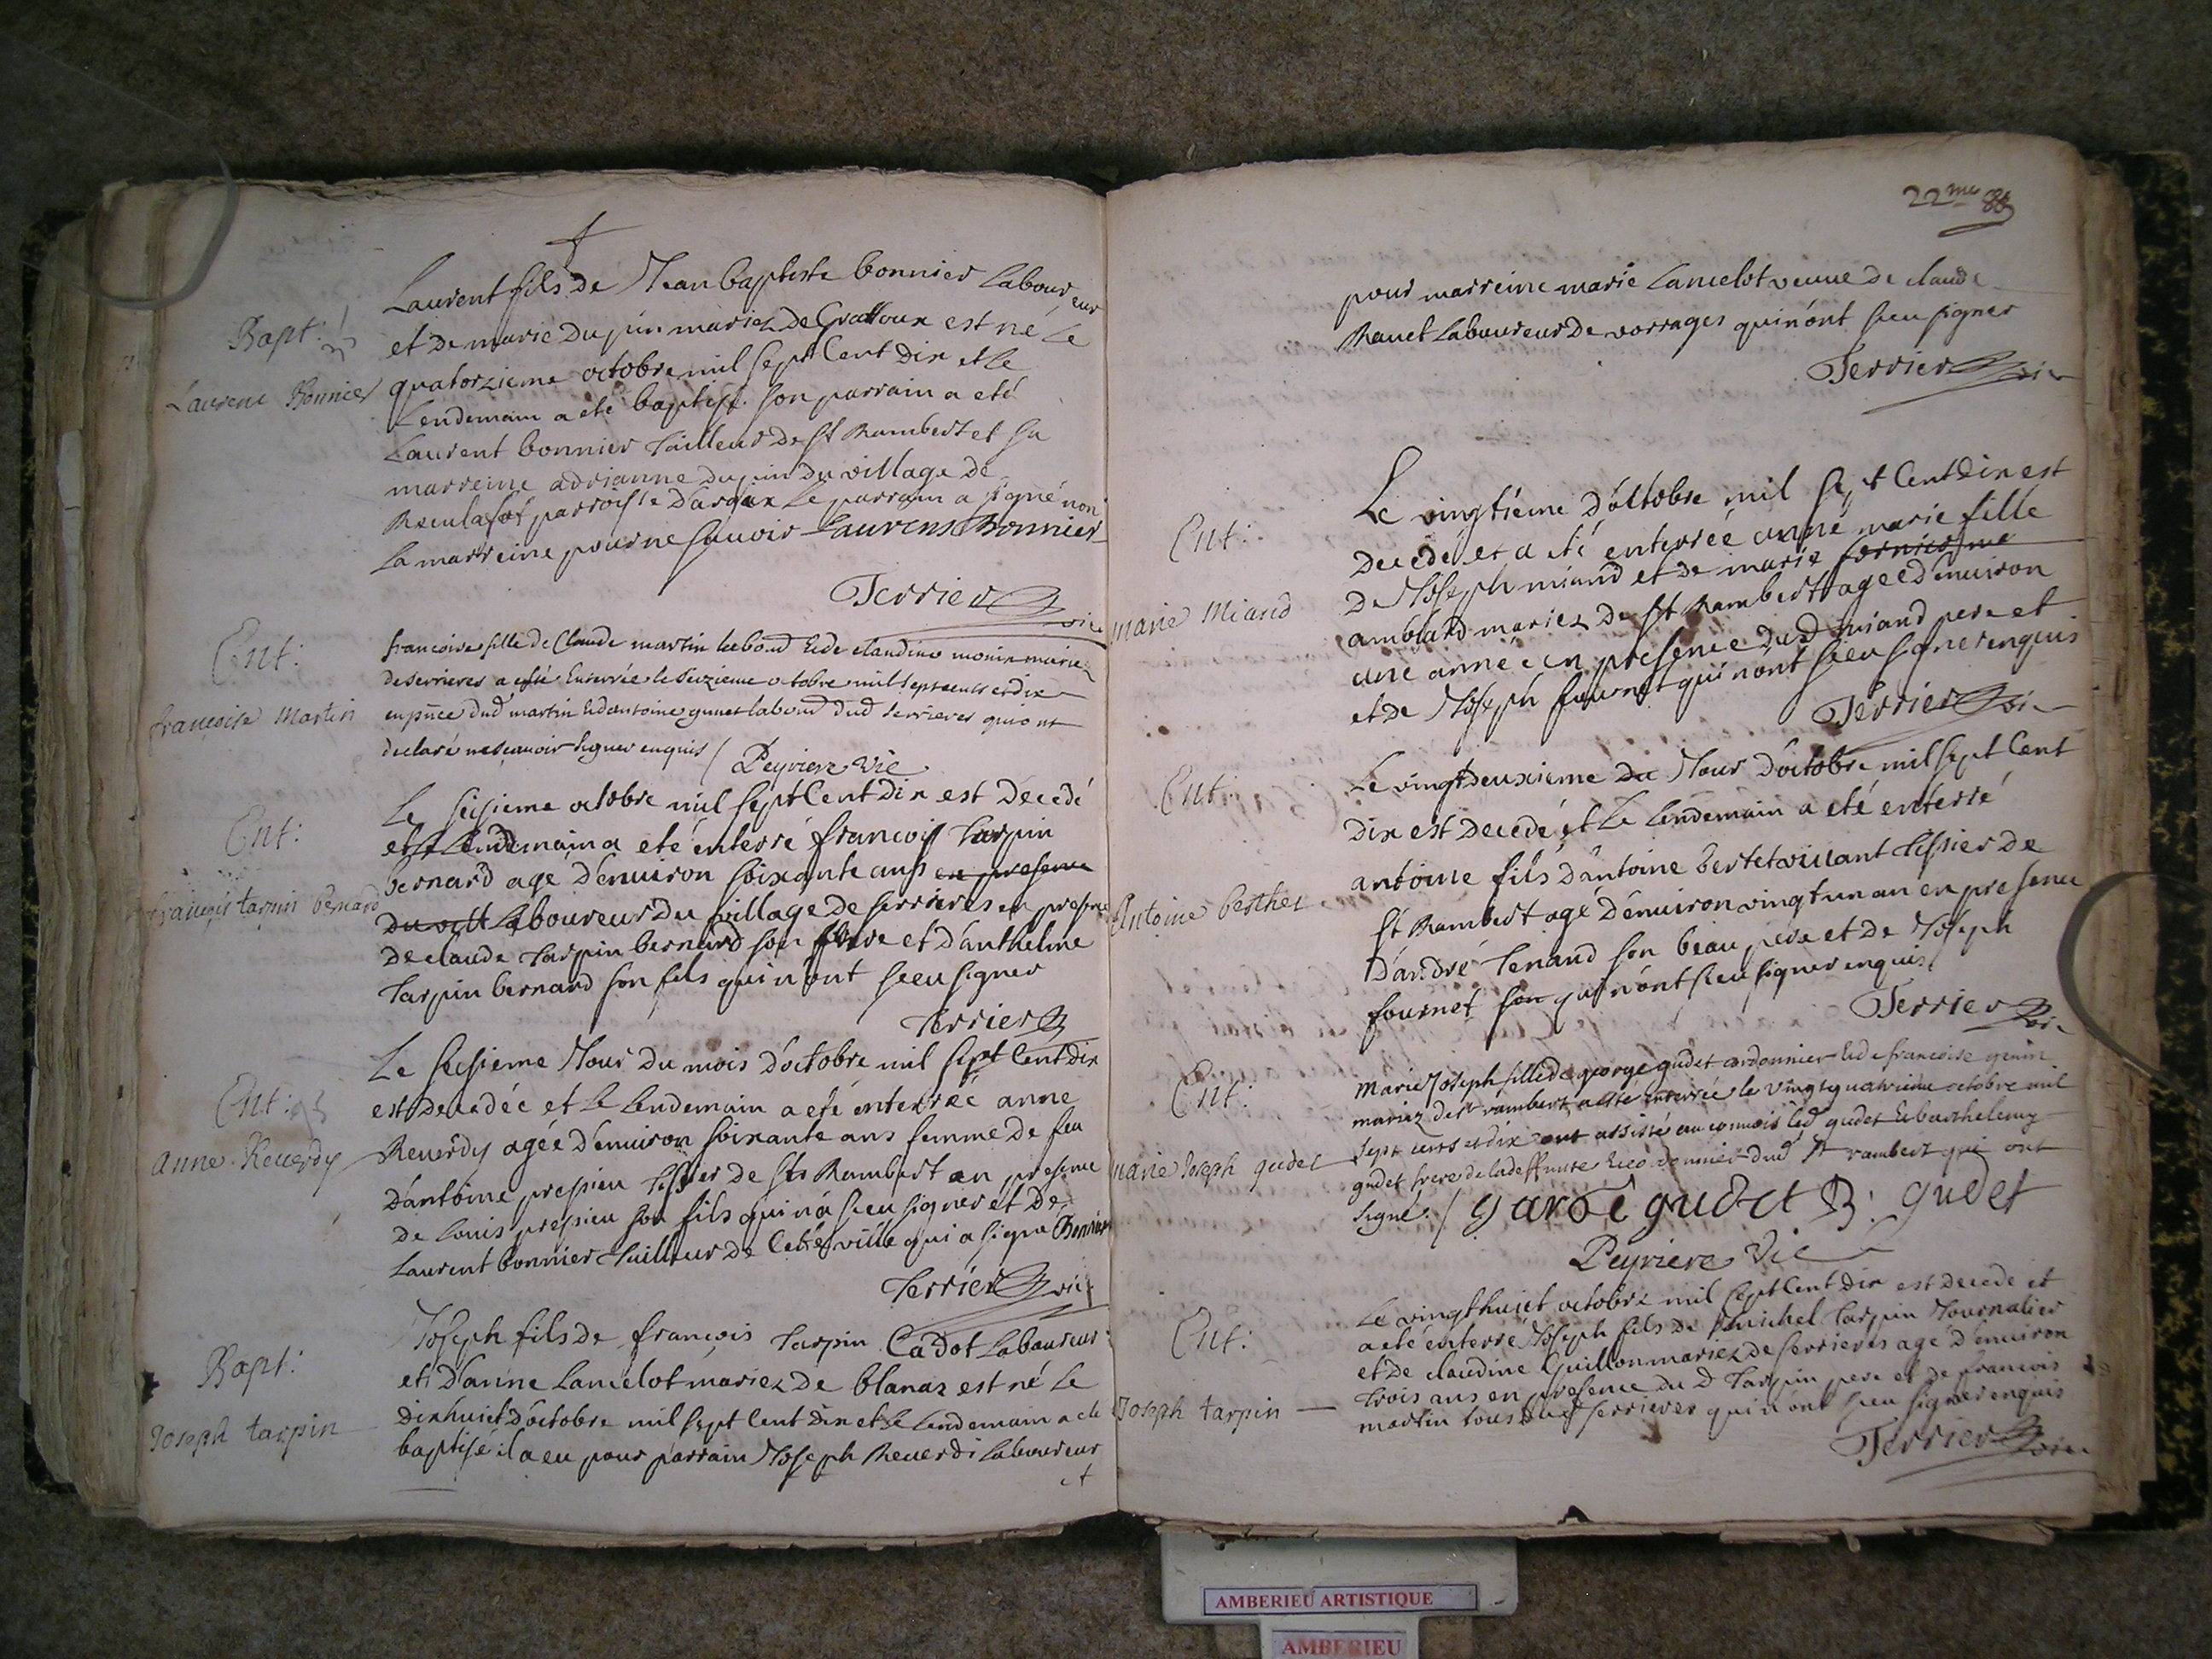 Bapt:
Laurent Bonnier
Laurent fils de Jean baptiste bonnier laboureur
et de marie Dupin mariez de Grattoux est né le
quatorzieme octobre mil sept Cent Dix et le
Lendemain a eté baptisé. son parrain a eté
Laurent bonnier tailleur de St Rambert et sa
marreine adrianne dupin du village de
parroisse D'arandax Le parrain a signé non
la marreine pour ne sauoir Laurens Bonnier
Terrier vic
Ent:
françoise Martin
francoise fille de Claude martin labour Et de claudine monin mariez
de serrieres a esté Enterrée le seizieme octobre mil sept cents et dix
en pnce dud martin Et dantoine gunet labour dud serrieres qui ont
declaré ne scauoir signer enquis / Peyriere Vic
Ent:
françois tarpin bernard
Le seisieme octobre mil sept Cent Dix est Decedé
et le lendemain a eté enterré francois tarpin
bernard agé d'enuiron soixante ans en presence
du vill laboureur du village de serrieres en presence
de claude tarpin bernard son frere et d'anthelme
tarpin bernard son fils qui n'ont sceu signer
Terrier
Ent:
anne Reuerdy
Le seisieme Jour du mois d'octobre mil sept Cent Dix
est decedée et le lendemain a eté enterrée anne
Reuerdy agée d'enuiron soixante ans femme de feu
D'antoine prepieu tissier de St Rambert en presence
de Louis prepieu son fils qui n'a sceu signer et de
Laurent bonnier tailleur de Cette ville qui a signé Bonnier
Terrier vic
Bapt:
Joseph tarpin
Joseph fils de francois tarpin Cadot laboureur
et D'anne Lancelot mariez de blanaz est né le
dixhuict d'octobre mil sept Cent Dix et le lendemain a eté
baptisé il a eu pour parrain Joseph Reuerdi laboureur
et
22me 88
pour marreine marie Lancelot veuue de claude
Rauet laboureur de vorrages qui n'ont sceu signer
Terrier vic
Ent:
marie Miand
Le vingtiéme d'octobre mil sept Cent Dix est
decedé et a eté enterrée anne marie fille
de Joseph miand et de marie fornier me
amblard mariez de St Rambert agee d'enuiron
une année en presence dud miand pere et
et de Joseph fournet qui n'ont sceu signer enquis
Terrier vic
Ent
Antoine berthet
Le vingtdeuxieme du Jour d'octobre mil sept Cent
dix est decedé et Le lendemain a eté enterré
antoine fils d'antoine bertet viuant tissier de
St Rambert agé d'enuiron vingt un an en presence
d'andré tenand son beau pere et de Joseph
fournet son qui n'ont sceu signer enquis
Terrier vic
Ent:
marie Joseph gudet
Marie Joseph fille de george gudet cordonnier Et de francoise genin
mariez de st rambert a esté enterrée le vingt quatrieme octobre mil
sept cents et dix ont assisté au conuois led gudet Et barthelemy
gudet frere de la deffunte Et cordonnier dud St rambert qui ont
signé / garde gudet B. gudet
Peyriere Vic
Ent:
Joseph tarpin
Le vingthuict octobre mil sept Cent dix est decede et
a eté enterré Joseph fils de michel tarpin Journalier
et de claudine Guillon mariez de serrieres agé d'enuiron
trois ans en presence du d tarpin pere et de francois
martin tous dud serrieres qui n'ont sceu signer enquis
Terrier vic
AMBERIEU ARTISTIQUE
AMBERIEU